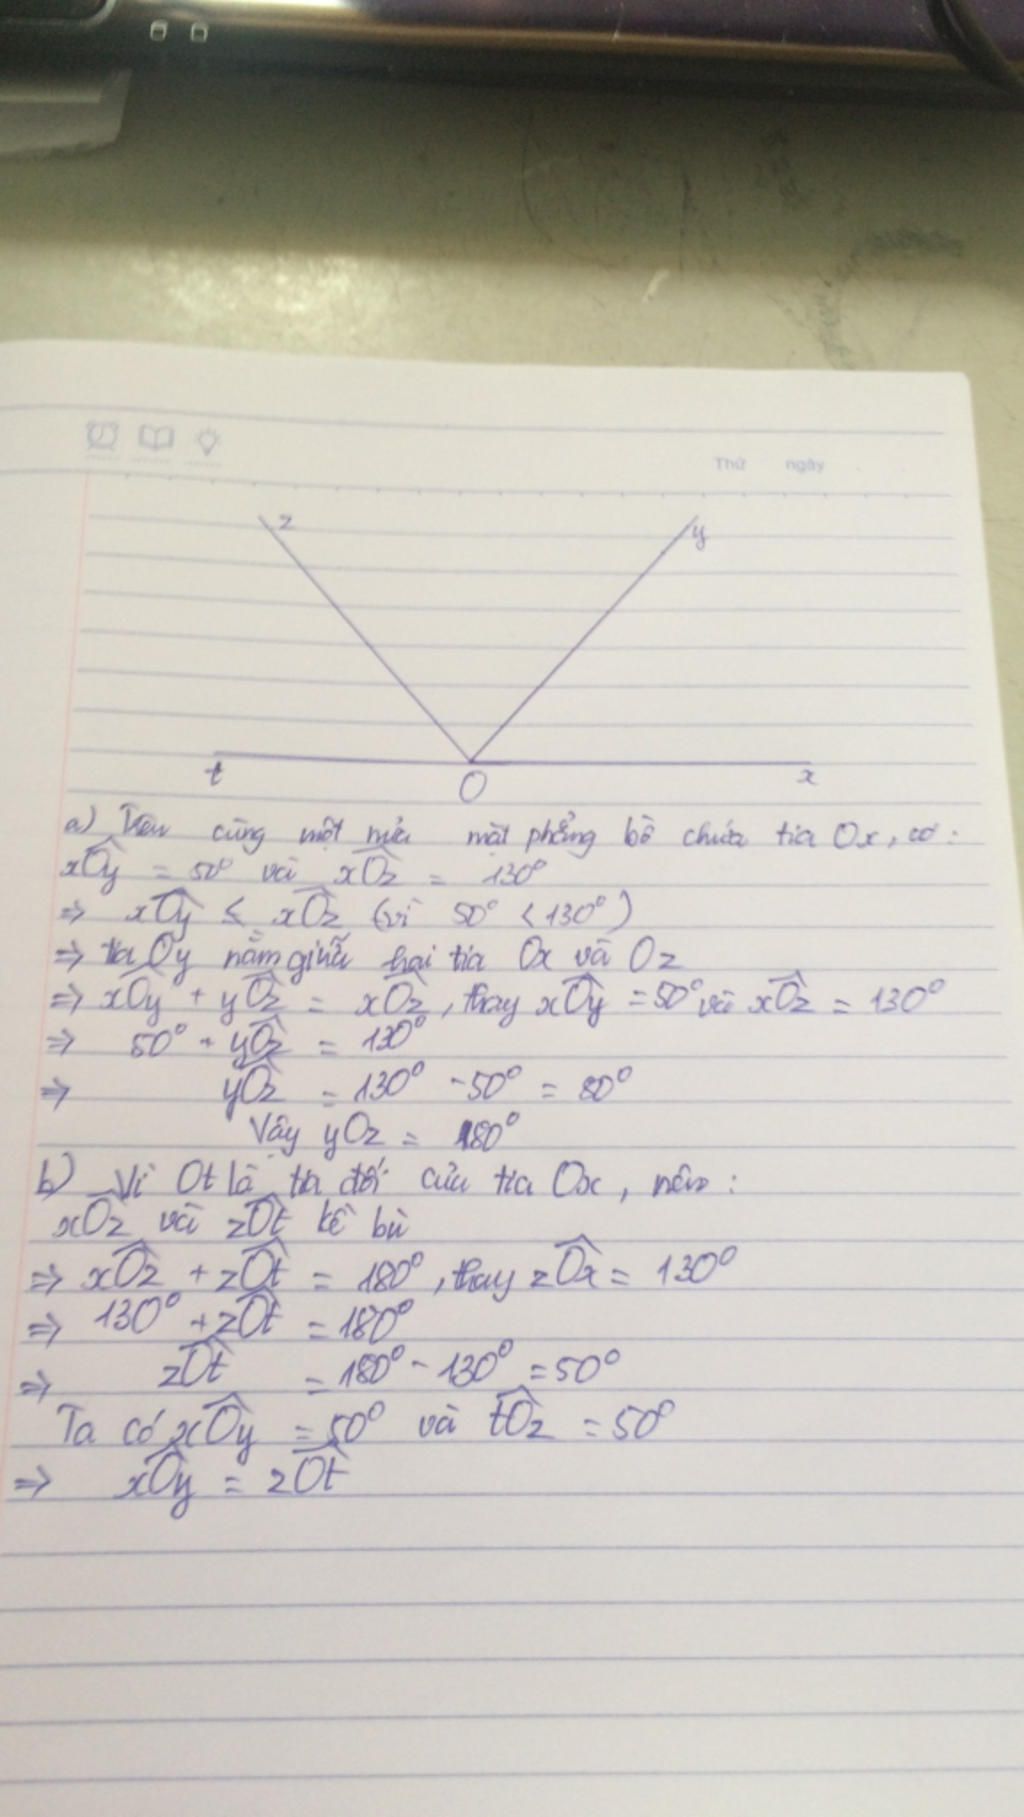 Thứ ngày
z y
t O x
a) Trên cùng một nửa mặt phẳng bờ chứa tia Ox, có:
xOy = 50° và xOz = 130°
=> xOy < xOz (vì 50° < 130°)
=> tia Oy nằm giữa hai tia Ox và Oz
=> xOy + yOz = xOz, thay xOy = 50° và xOz = 130°
=> 50° + yOz = 130°
=> yOz = 130° - 50° = 80°
Vậy yOz = 80°
b) Vì Ot là tia đối của tia Ox, nên:
xOz và zOt kề bù
=> xOz + zOt = 180°, thay zOx = 130°
=> 130° + zOt = 180°
=> zOt = 180° - 130° = 50°
Ta có xOy = 50° và tOz = 50°
=> xOy = zOt